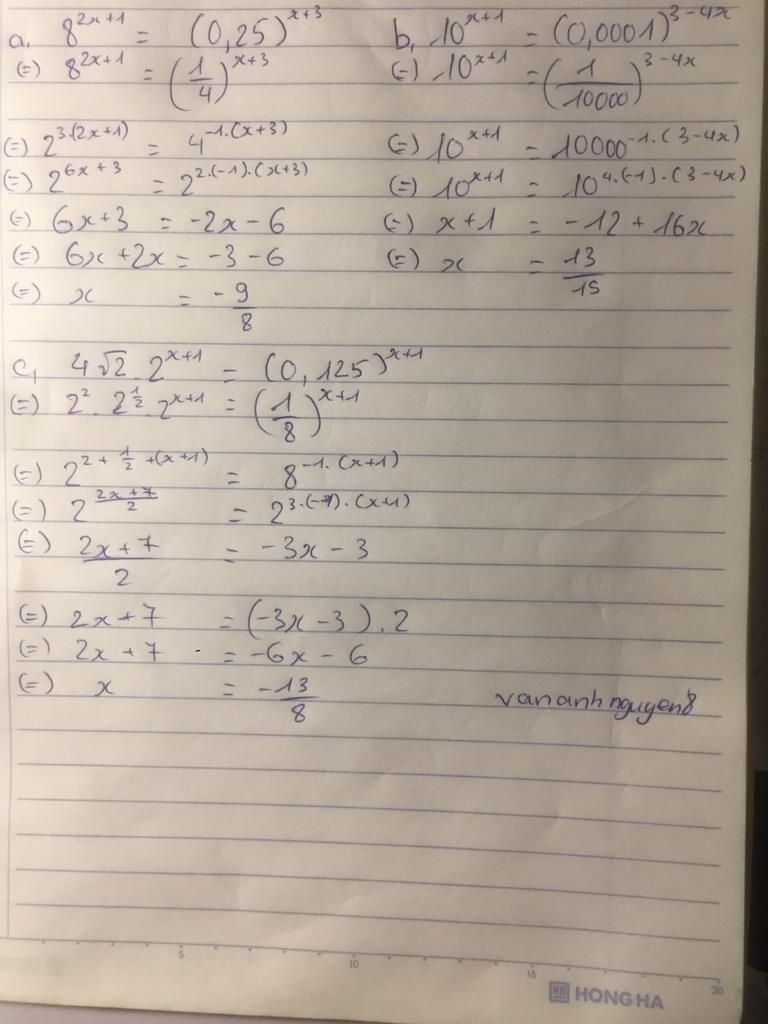 a, 8^{2x+1} = (0,25)^{x+3}
(=) 8^{2x+1} = (1/4)^{x+3}
(=) 2^{3.(2x+1)} = 4^{-1.(x+3)}
(=) 2^{6x+3} = 2^{2.(-1).(x+3)}
(=) 6x+3 = -2x-6
(=) 6x+2x = -3-6
(=) x = -9/8
b, 10^{x+1} = (0,0001)^{3-4x}
(=) 10^{x+1} = (1/10000)^{3-4x}
(=) 10^{x+1} = 10000^{-1.(3-4x)}
(=) 10^{x+1} = 10^{4.(-1).(3-4x)}
(=) x+1 = -12+16x
(=) x = 13/15
c, 4√2 . 2^{x+1} = (0,125)^{x+1}
(=) 2^2 . 2^{1/2} . 2^{x+1} = (1/8)^{x+1}
(=) 2^{2+1/2+(x+1)} = 8^{-1.(x+1)}
(=) 2^{(2x+7)/2} = 2^{3.(-1).(x+1)}
(=) (2x+7)/2 = -3x-3
(=) 2x+7 = (-3x-3).2
(=) 2x+7 = -6x-6
(=) x = -13/8
vananhnguyen8
5 10 15 20
HONG HA